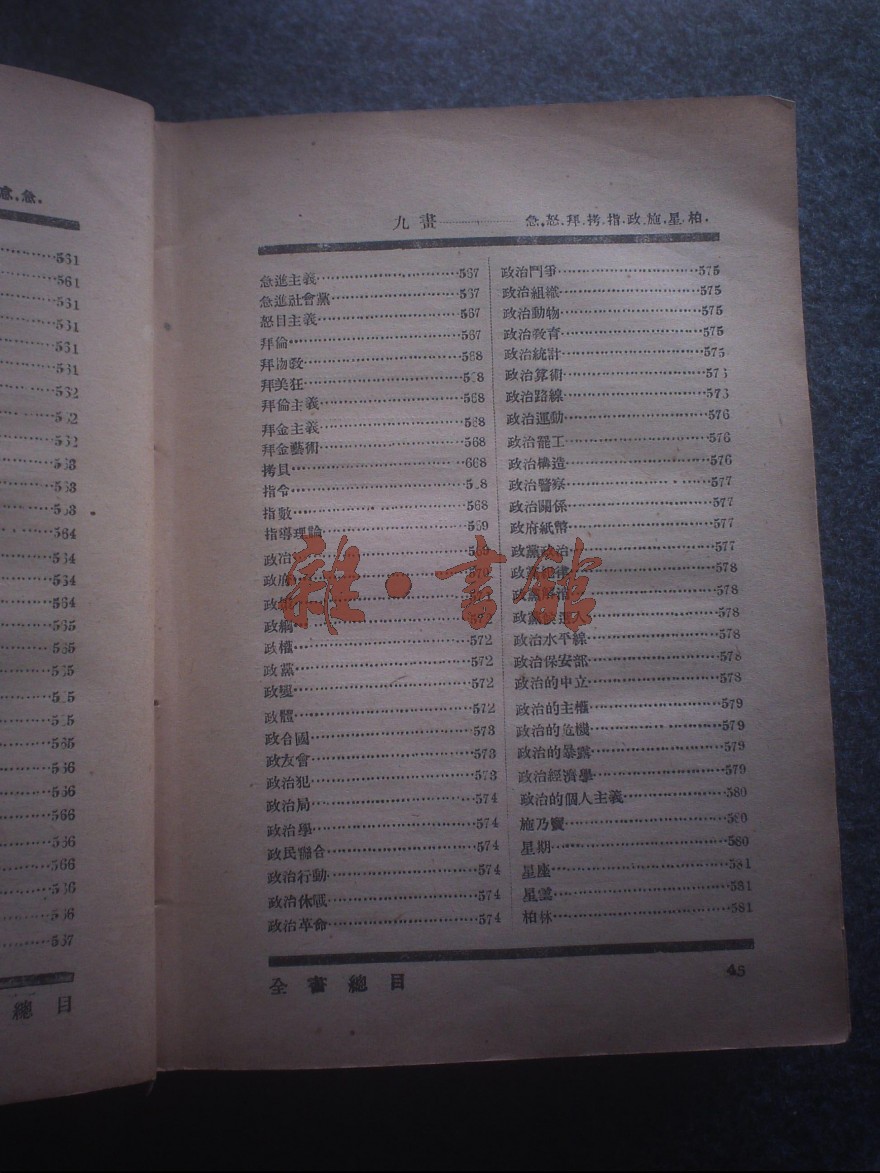 急.
561
561
561
561
561
561
562
562
562
563
563
563
564
564
564
564
565
565
565
565
565
565
566
566
566
566
566
566
566
567
總目
九畫 急.怒.拜.拷.指.政.施.星.柏.
急進主義 567
急進社會黨 567
怒目主義 567
拜倫 567
拜物教 568
拜美狂 568
拜倫主義 568
拜金主義 568
拜金藝術 568
拷貝 668
指令 568
指數 568
指導理論 569
政治 569
政府 570
政綱 572
政權 572
政黨 572
政變 572
政體 572
政合國 573
政友會 573
政治犯 573
政治局 574
政治學 574
政民聯合 574
政治行動 574
政治休戰 574
政治革命 574
政治鬥爭 575
政治組織 575
政治動物 575
政治教育 575
政治統計 575
政治算術 575
政治路線 575
政治運動 576
政治罷工 576
政治構造 576
政治警察 577
政治關係 577
政府紙幣 577
政黨政治 577
政黨紀律 578
政黨取消 578
政黨候選人 578
政治水平線 578
政治保安部 578
政治的中立 578
政治的主權 579
政治的危機 579
政治的暴露 579
政治經濟學 579
政治的個人主義 580
施乃寶 580
星期 580
星座 581
星雲 581
柏林 581
全書總目 45
雜·書館